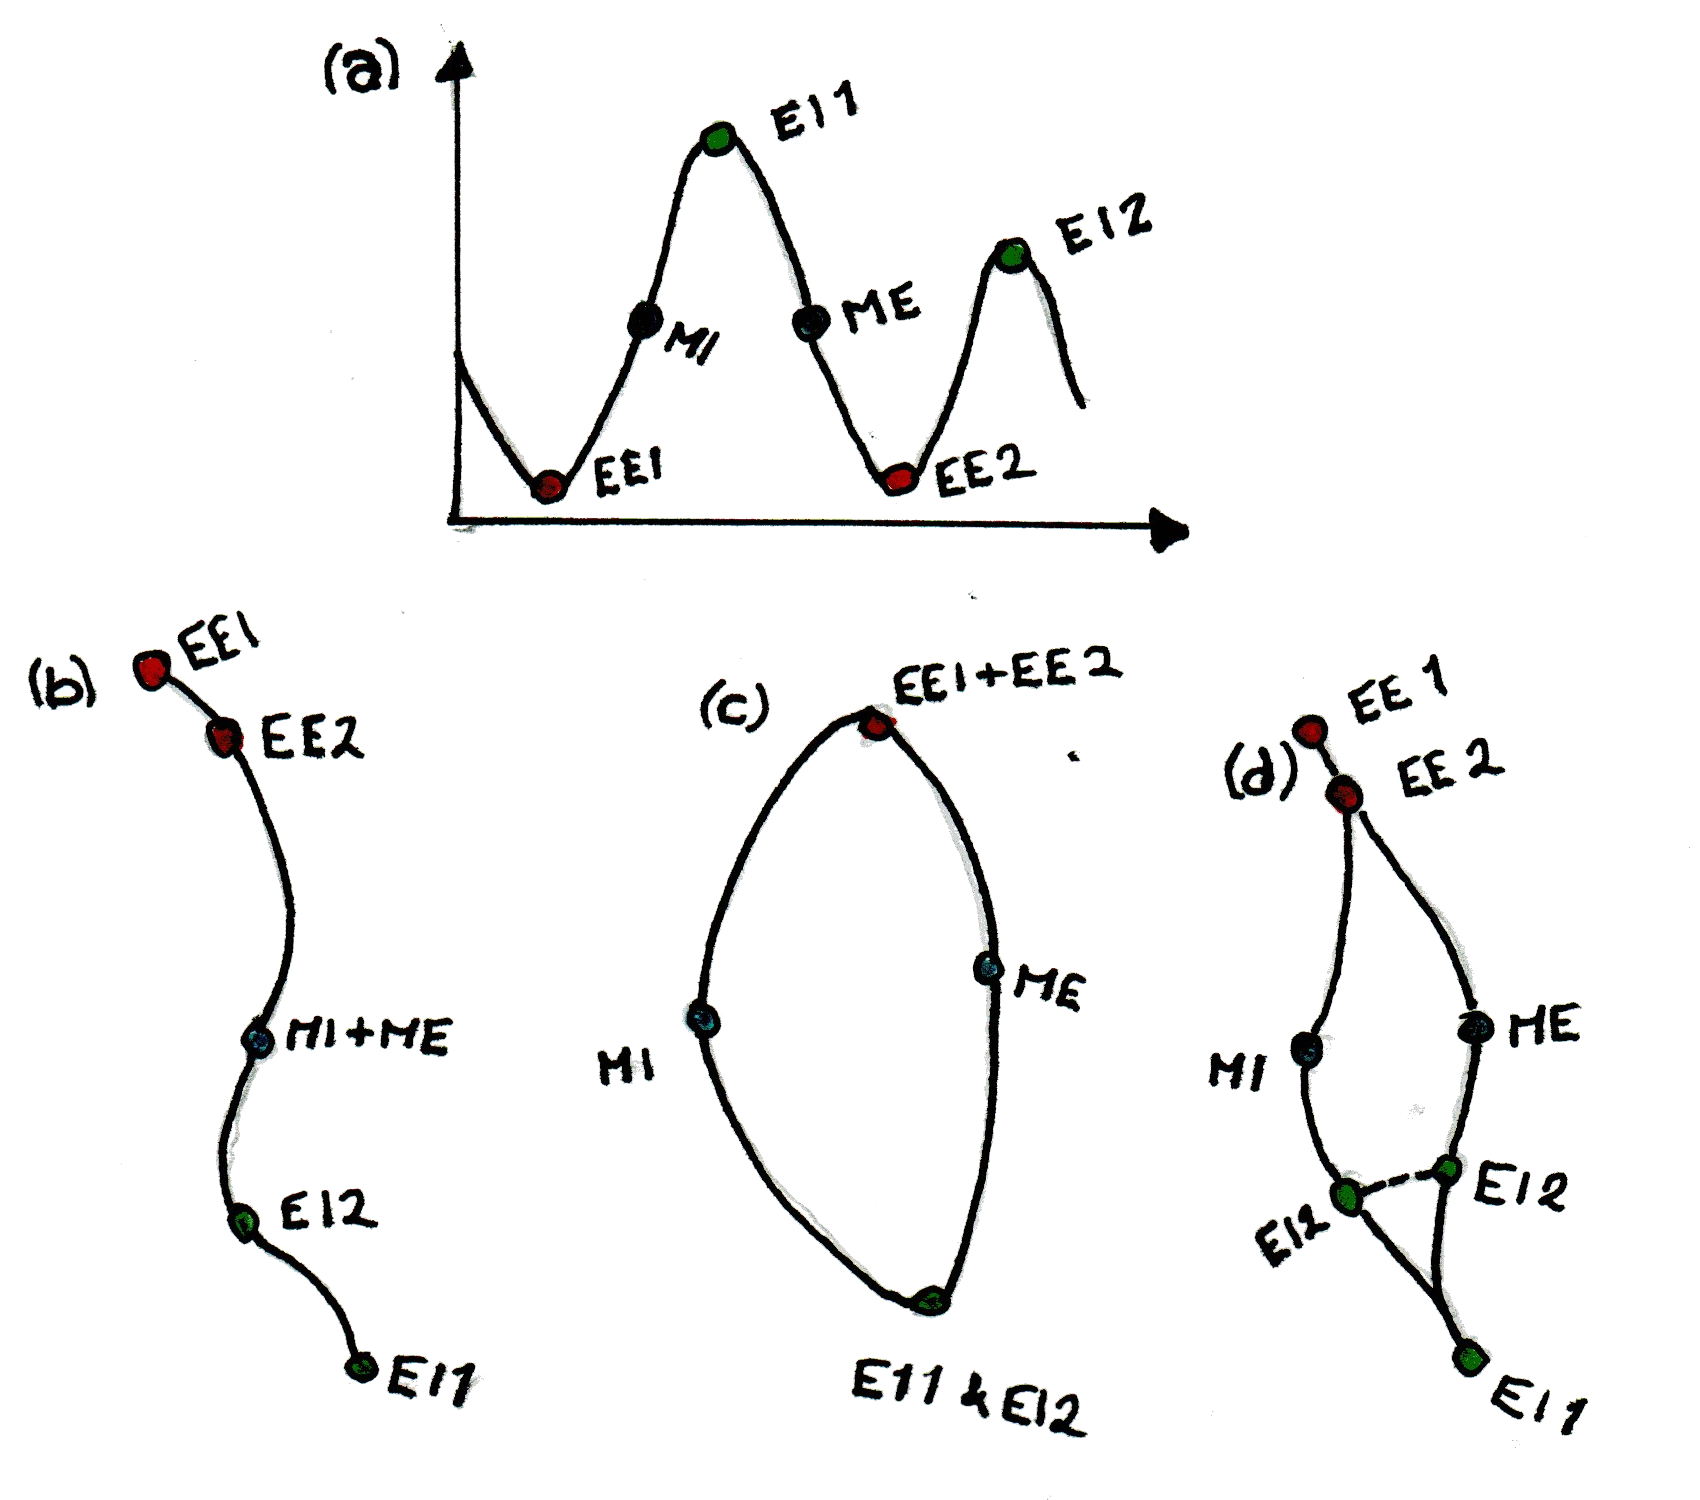 (a)
EI1
EI2
ME
MI
EE1
EE2
(b)
EE1
EE2
MI+ME
EI2
EI1
(c)
EE1+EE2
ME
MI
EI1 & EI2
(d)
EE1
EE2
ME
MI
EI2
EI2
EI1